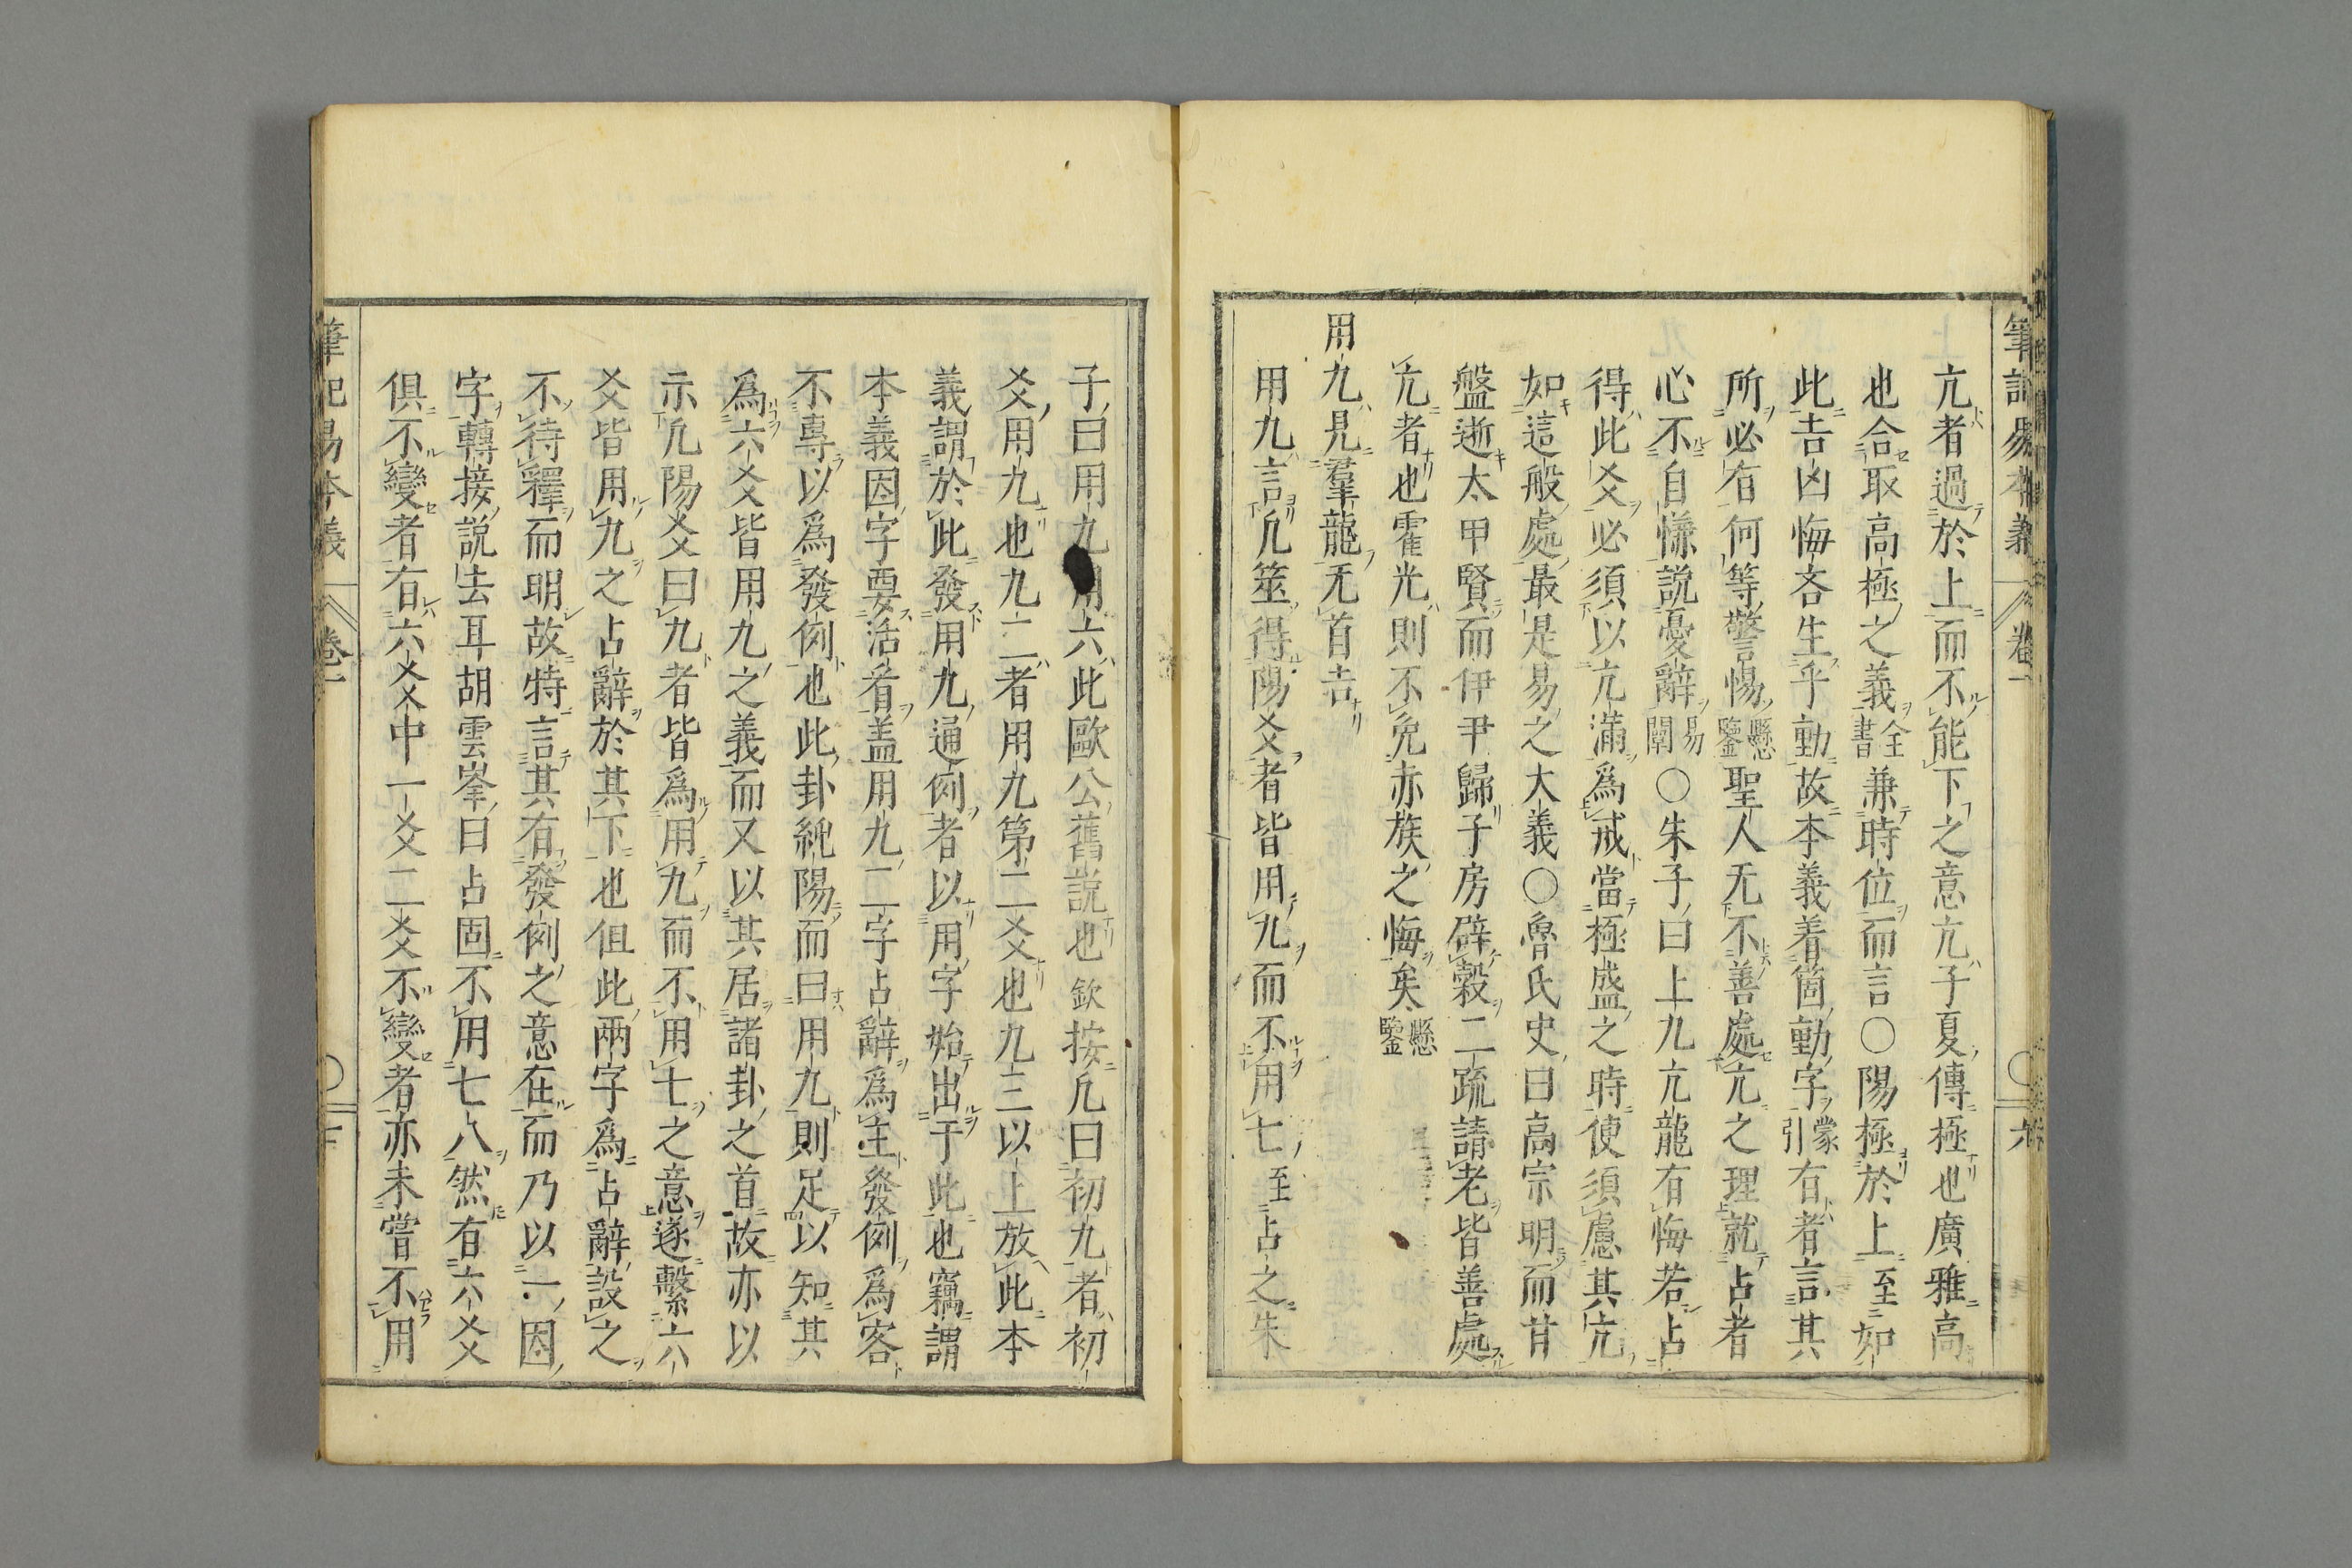 筆記易本義 卷一
亢者過於上而不能下之意亢子夏傳極也廣雅高
也合取高極之義全書兼時位而言○陽極於上至如
此吉凶悔吝生乎動故本義着箇動字蒙引有者言其
所必有何等警惕懸鑒聖人无不善處亢之理就占者
心不自慊說憂辭易闡○朱子曰上九亢龍有悔若占
得此爻必須以亢滿爲戒當極盛之時便須慮其亢
如這般處最是易之大義○魯氏史曰高宗明而甘
盤遯太甲賢而伊尹歸子房辟穀二疏請老皆善處
亢者也霍光則不免赤族之悔矣懸鑒
用九見羣龍无首吉
用九言凢筮得陽爻者皆用九而不用七至占之朱
子曰用九用六此歐公舊說也欽按凢曰初九者初
爻用九也九二者用九第二爻也九三以上放此本
義謂於此發用九通例者以用字始出于此也竊謂
本義因字要活看盖用九二字占辭爲主發例爲客
不專以爲發例也此卦純陽而曰用九則足以知其
爲六爻皆用九之義而又以其居諸卦之首故亦以
示凢陽爻曰九者皆爲用九而不用七之意遂繫六
爻皆用九之占辭於其下也但此兩字爲占辭設之
不待釋而明故特言其有發例之意在而乃以一因
字轉接說去耳胡雲峯曰占固不用七八然有六爻
俱不變者有六爻中一爻二爻不變者亦未嘗不用
筆記易本義 卷一